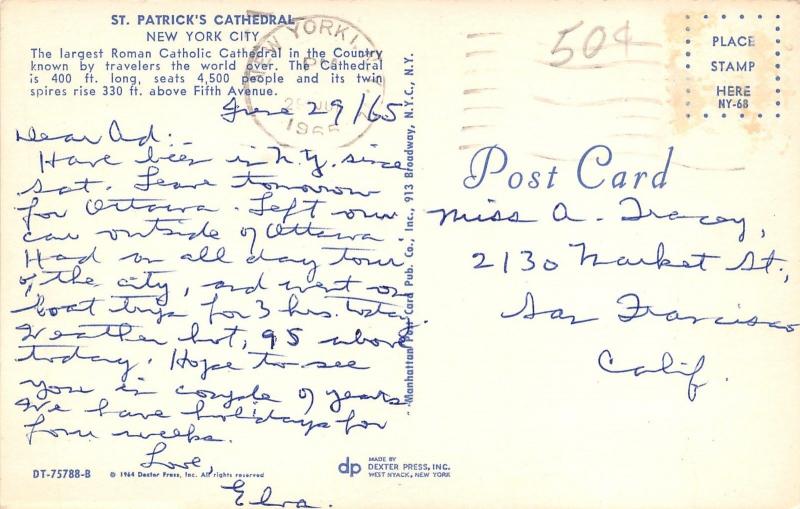 ST. PATRICK'S CATHEDRAL
NEW YORK CITY
The largest Roman Catholic Cathedral in the Country
known by travelers the world over. The Cathedral
is 400 ft. long, seats 4,500 people and its twin
spires rise 330 ft. above Fifth Avenue.
June 29/65
Dear Ad:-
Have been in N.Y. since
Sat. Leave tomorrow
for Ottawa. Left our
car outside of Ottawa.
Had an all day tour
of the city, and went on
boat trip for 3 hrs. today.
Weather hot, 95 above
today. Hope to see
you in couple of years.
We have holidays for
four weeks.
Love,
Elva.
DT-75788-B
© 1964 Dexter Press, Inc. All rights reserved
Manhattan Post Card Pub. Co., Inc., 913 Broadway, N.Y.C., N.Y.
dp
MADE BY
DEXTER PRESS, INC.
WEST NYACK, NEW YORK
NEW YORK, N.Y.
1965
50¢
PLACE
STAMP
HERE
NY-68
Post Card
Miss A. Tracey,
2130 Market St.,
San Francisco
Calif.